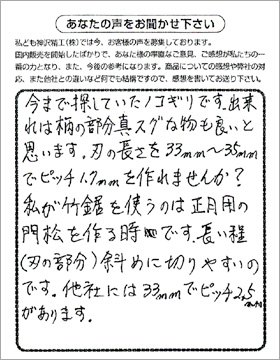 あなたの声をお聞かせ下さい
私ども神沢精工(株)では今、お客様の声を募集しております。
国内販売を開始したばかりで、あなた様の率直なご意見、ご感想が私たちの一
番の力となり、また、今後の参考になります。商品についての感想や弊社の対
応、また他社との違いなど何でも結構ですので、感想を書いてお送り下さい。
今まで探していたノコギリです。出来
れば柄の部分真スグな物も良いと
思います。刃の長さを33mm〜35mm
でピッチ1.7mmを作れませんか?
私が竹鋸を使うのは正月用の
門松を作る時です。長い程
(刃の部分)斜めに切りやすいの
です。他社には33mmでピッチ2.5
があります。